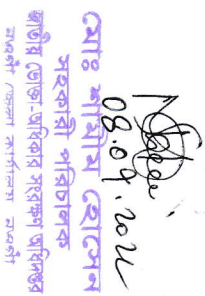 08.04.2021
মোঃ শামীম হোসেন
সহকারী পরিচালক
জাতীয় ভোক্তা-অধিকার সংরক্ষণ অধিদপ্তর
জেলা কার্যালয়